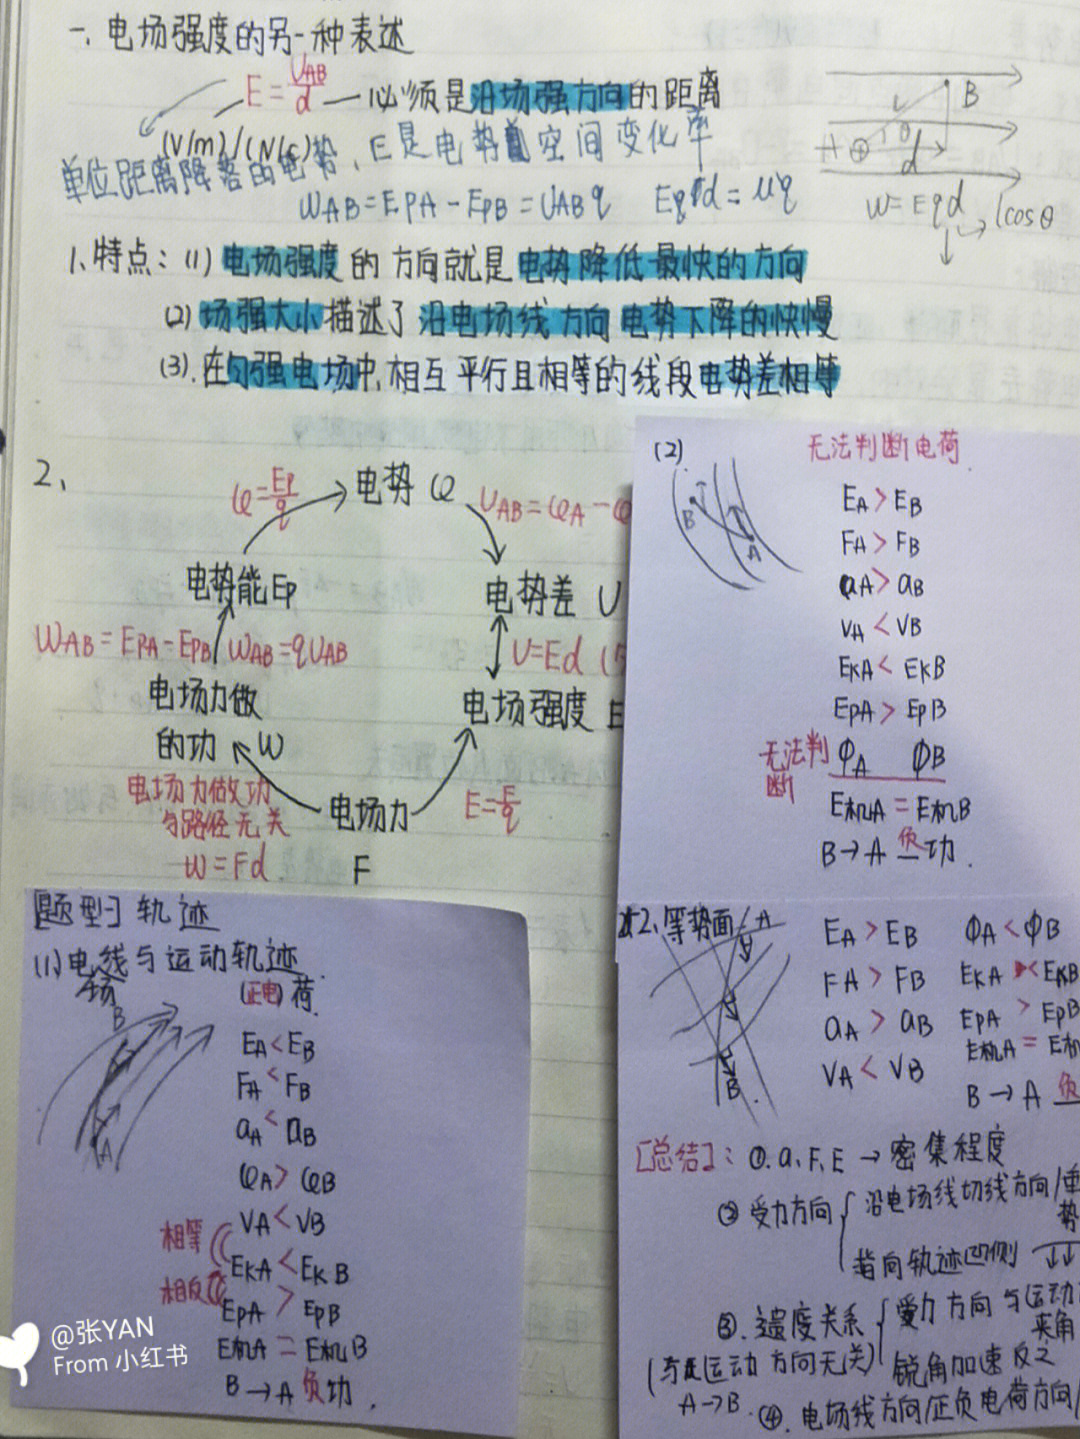 一、电场强度的另一种表述
E=UAB/d —必须是沿场强方向的距离
(V/m)/(N/C)
单位距离降落的电势，E是电势的空间变化率
WAB=EPA-EPB=UABq Eqd=Uq
B
L
A θ
d
W=Eqd
Lcosθ
1、特点：(1) 电场强度的方向就是电势降低最快的方向
(2) 场强大小描述了沿电场线方向电势下降的快慢
(3).在匀强电场中,相互平行且相等的线段电势差相等
2、
φ=Ep/q
电势 φ
UAB=φA-φ
电势能Ep
电势差 U
WAB=EPA-EPB
WAB=qUAB
U=Ed
电场力做
的功 W
电场强度 E
电场力做功
与路径无关
W=Fd
电场力
F
E=F/q
(2)
无法判断电荷
B
A
EA>EB
FA>FB
aA>aB
VA<VB
EKA<EKB
EPA>EPB
无法判断 φA φB
E机A=E机B
B→A 负功.
[题型] 轨迹
(1)电场线与运动轨迹
(正电)荷
B
A
EA<EB
FA<FB
aA<aB
φA>φB
VA<VB
相等
EKA<EKB
相反
EPA>EPB
E机A=E机B
B→A 负功.
2.等势面
A
B
EA>EB φA<φB
FA>FB EKA<EKB
aA>aB EPA>EPB
VA<VB E机A=E机
B→A 负
[总结]：①.a,F,E→密集程度
②受力方向 沿电场线切线方向/垂
势
指向轨迹凹侧
③.速度关系 受力方向与运动
夹角
(与运动方向无关) 锐角加速反之
A→B.
④.电场线方向/正负电荷方向/
@张YAN
From 小红书